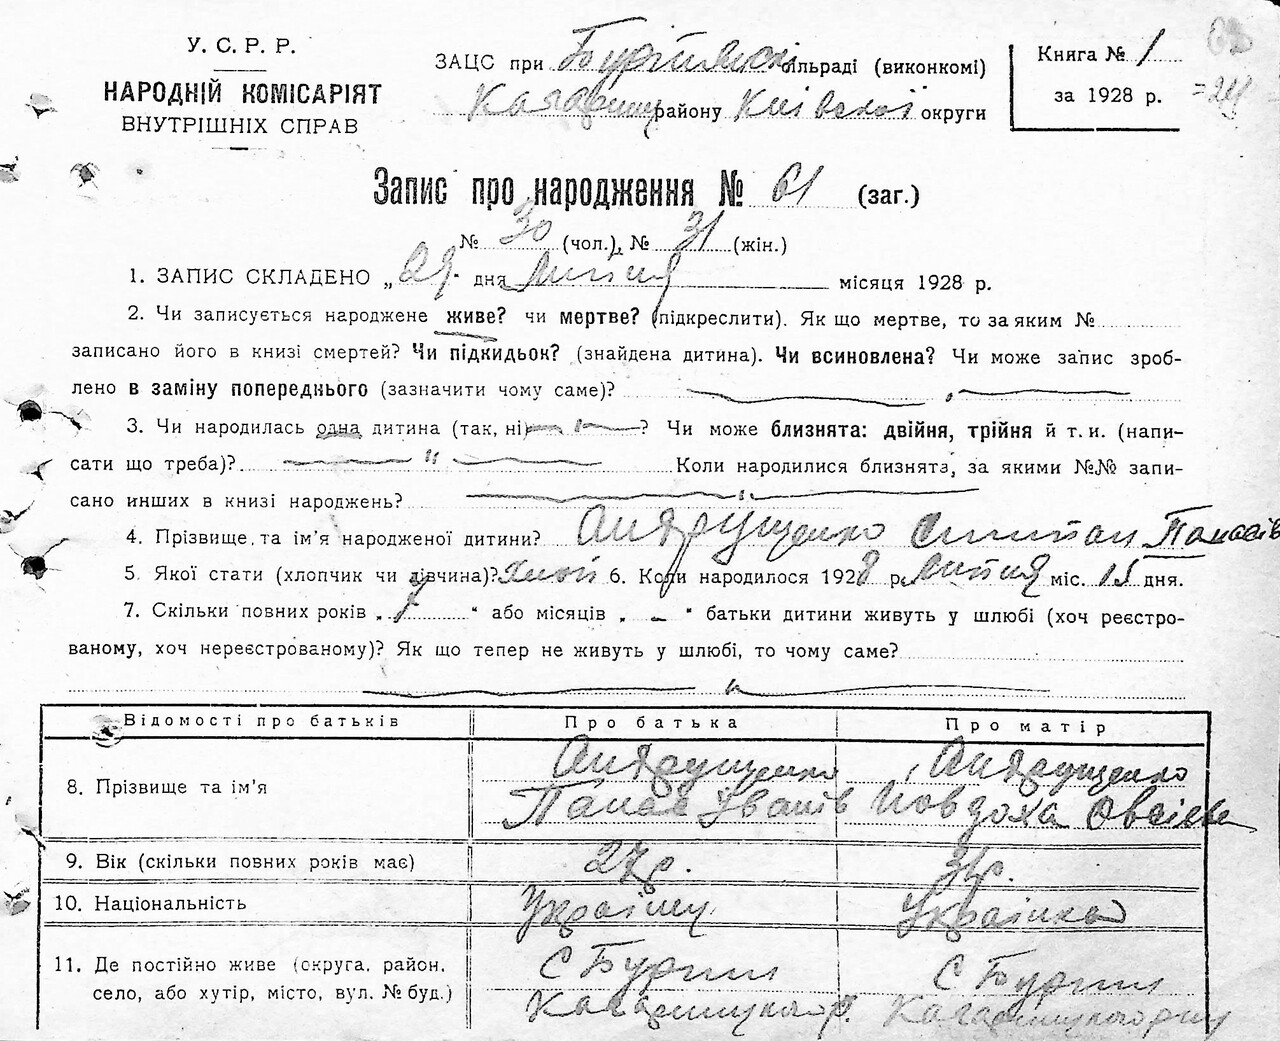 У. С. Р. Р.
НАРОДНІЙ КОМІСАРІЯТ
ВНУТРІШНІХ СПРАВ
ЗАЦС при сільраді (виконкомі)
району Київської округи
Книга № 1
за 1928 р.
Запис про народження № 61 (заг.)
№ 30 (чол.), № 31 (жін.)
1. ЗАПИС СКЛАДЕНО „29" дня Липня місяця 1928 р.
2. Чи записується народжене живе? чи мертве? (підкреслити). Як що мертве, то за яким №
записано його в книзі смертей? Чи підкидьок? (знайдена дитина). Чи всиновлена? Чи може запис зроб-
лено в заміну попереднього (зазначити чому саме)?
3. Чи народилась одна дитина (так, ні) ? Чи може близнята: двійня, трійня й т. и. (напи-
сати що треба)? Коли народилися близнята, за якими №№ запи-
сано инших в книзі народжень?
4. Прізвище та ім'я народженої дитини? Андрущенко Степан Панасів
5. Якої стати (хлопчик чи дівчина)? 6. Коли народилося 1928 р. Липня міс. 15 дня.
7. Скільки повних років „ 7 " або місяців „ – " батьки дитини живуть у шлюбі (хоч реєстро-
ваному, хоч нереєстрованому)? Як що тепер не живуть у шлюбі, то чому саме?
Відомості про батьків Про батька Про матір
8. Прізвище та ім'я Андрущенко Панас Іванів Андрущенко Овсіївна
9. Вік (скільки повних років має) 27 р. 31 р.
10. Національність Українець Українка
11. Де постійно живе (округа, район, С Бурти С Бурти
село, або хутір, місто, вул. № буд.) Кагарлицького р. Кагарлицького р-ну